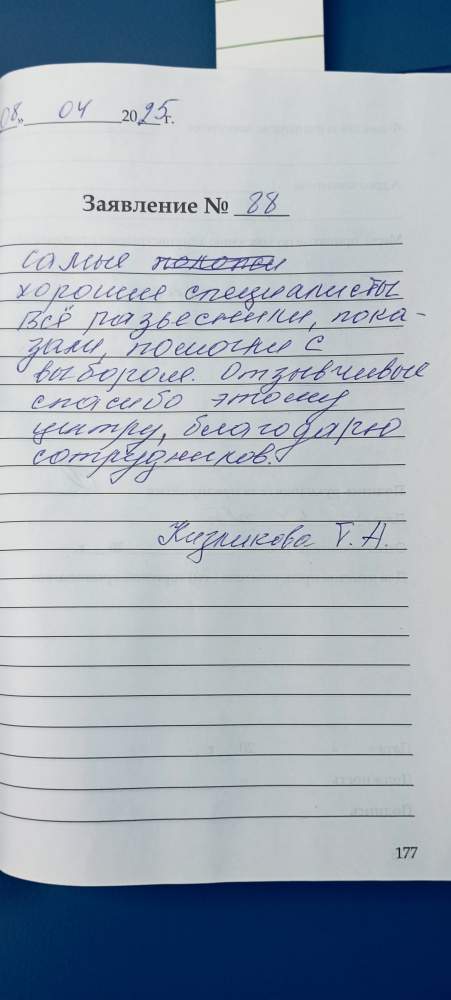 08 " 04 2025 г.
Заявление № 88
Самые
хорошие специалисты
Всё разьеснили, пока-
зали, помогли с
выбором. Отзывчивые
спасибо этому
центру, благодарю
сотрудников.
Т. А.
177